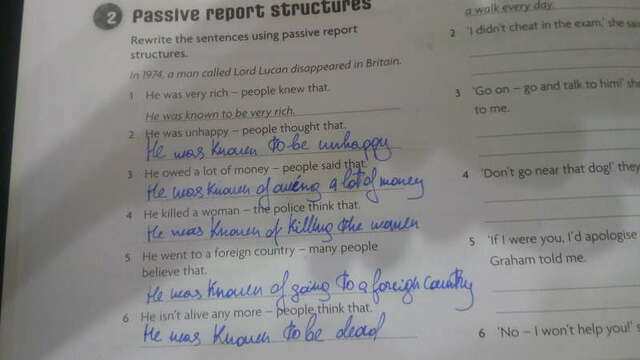 2 Passive report structures
Rewrite the sentences using passive report
structures.
In 1974, a man called Lord Lucan disappeared in Britain.
1 He was very rich – people knew that.
He was known to be very rich.
2 He was unhappy – people thought that.
He was known to be unhappy
3 He owed a lot of money – people said that.
He was known of owing a lot of money
4 He killed a woman – the police think that.
He was known of killing the women
5 He went to a foreign country – many people
believe that.
He was known of going to a foreign country
6 He isn't alive any more – people think that.
He was known to be dead
a walk every day.
2 'I didn't cheat in the exam,' she
3 'Go on – go and talk to him!' she
to me.
4 'Don't go near that dog!' they
5 'If I were you, I'd apologise
Graham told me.
6 'No – I won't help you!'